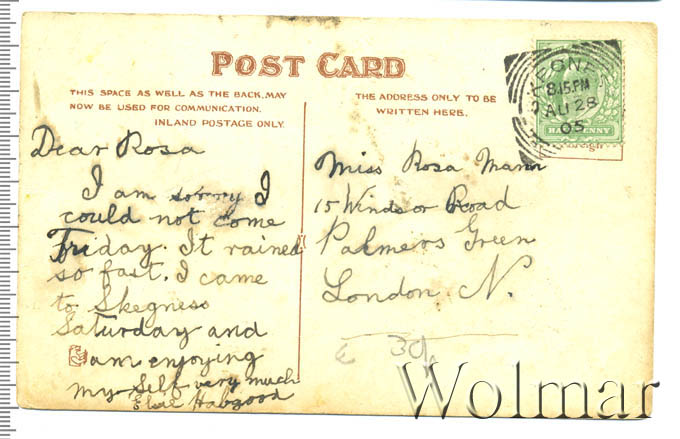 POST CARD
THIS SPACE AS WELL AS THE BACK, MAY
NOW BE USED FOR COMMUNICATION.
INLAND POSTAGE ONLY.
THE ADDRESS ONLY TO BE
WRITTEN HERE.
8.15 PM
AU 28
05
HALFPENNY
Dear Rosa
I am sorry I
could not come
Friday. It rained
so fast. I came
to Skegness
Saturday and
am enjoying
my self very much
Elsie Habgood
Miss Rosa Mann
15 Windsor Road
Palmers Green
London N.
Wolmar